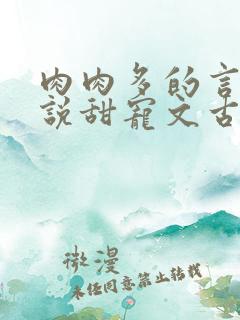 肉肉多的言
说甜宠文古
微漫
未经同意禁止转载